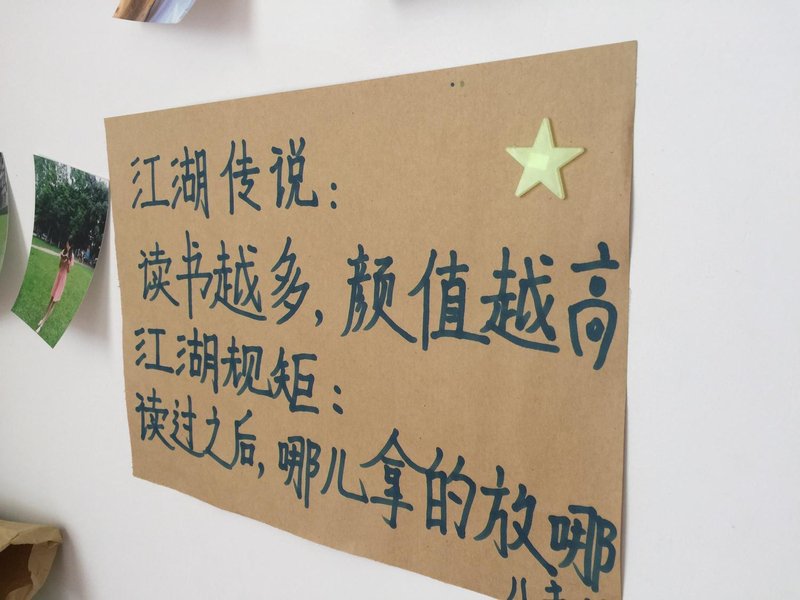 江湖传说:
读书越多,颜值越高
江湖规矩:
读过之后,哪儿拿的放哪
儿